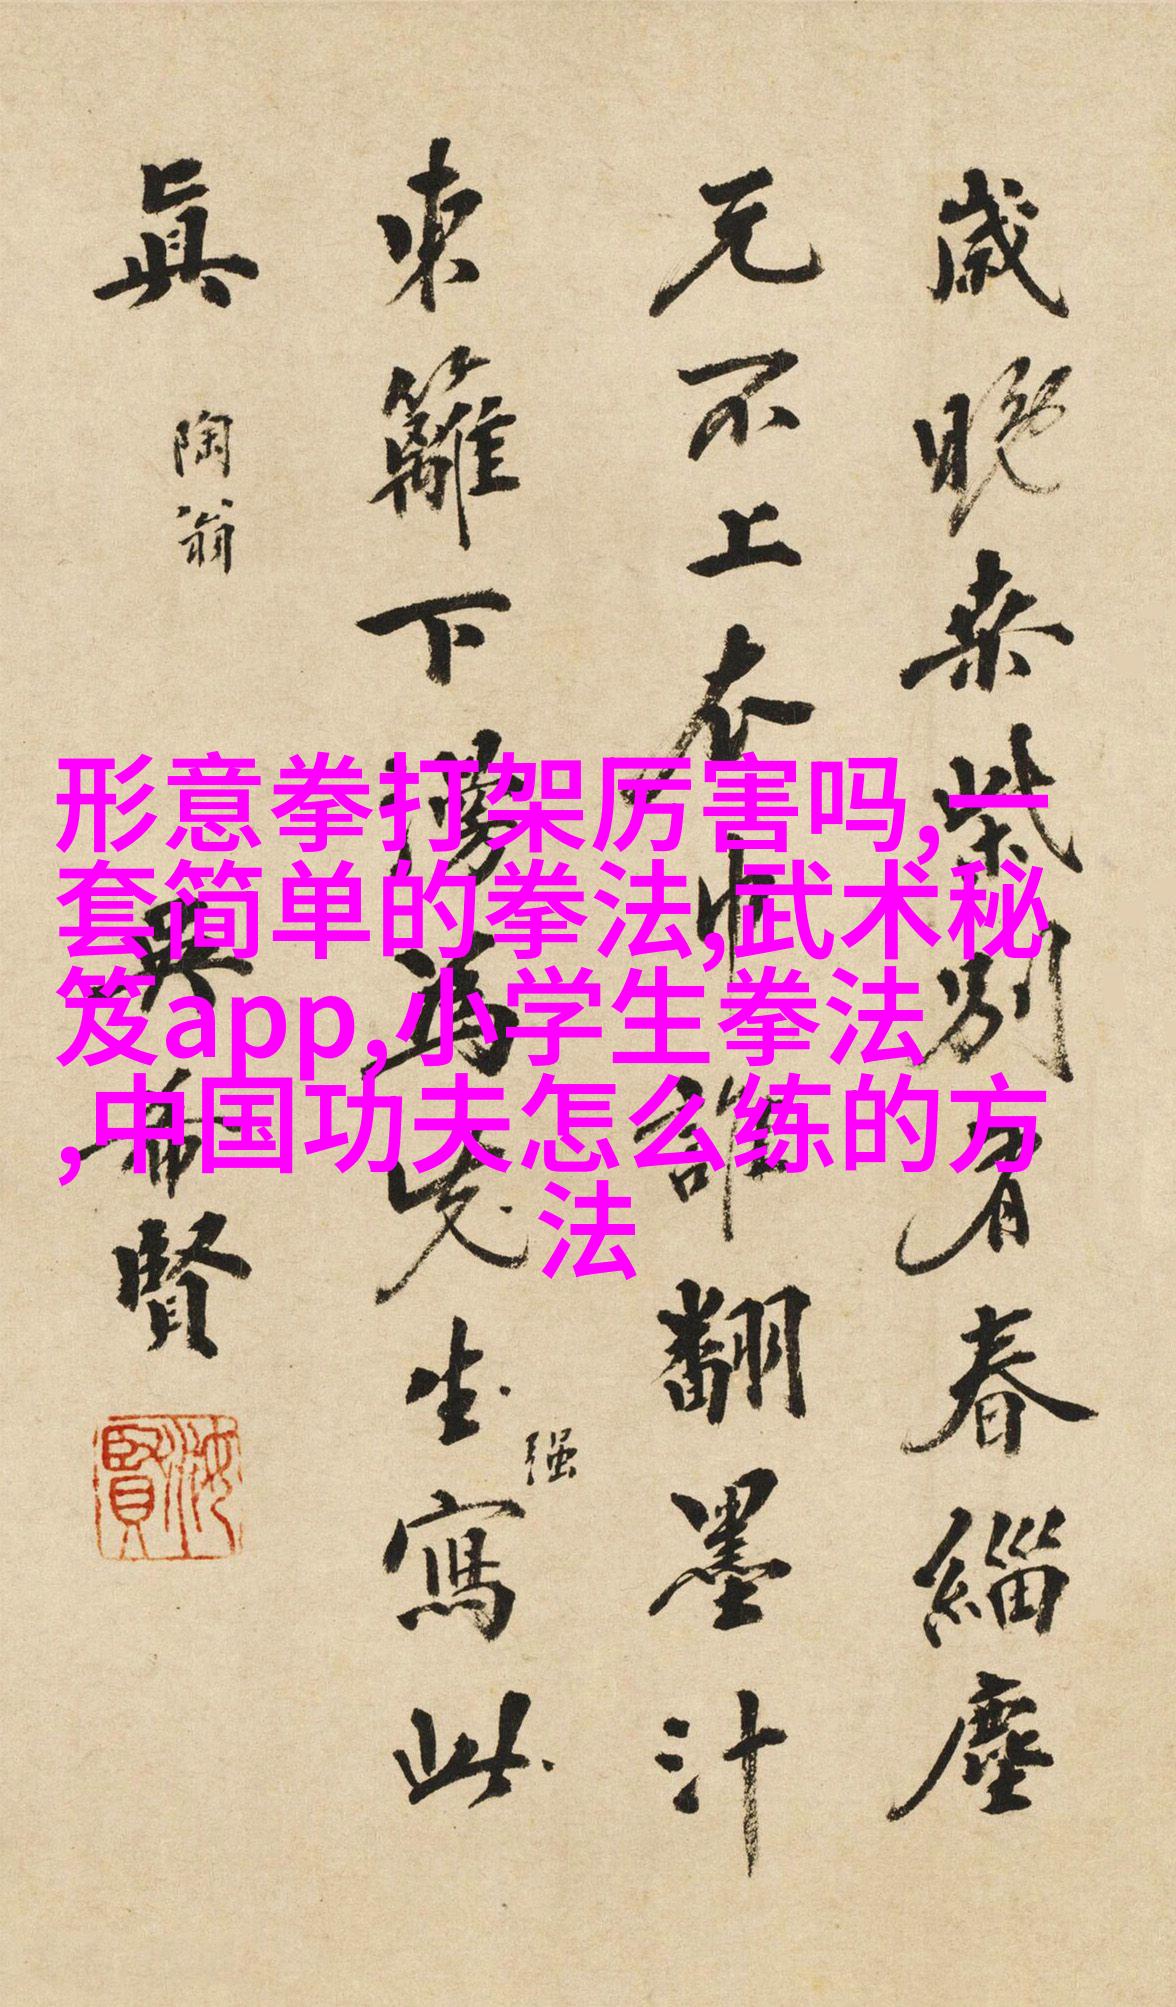 歲晚来紫別有春緇塵
元不上衣巾誰翻墨汁
東籬下漫為先生寫此
强
真
陶翁
吳希賢
形意拳打架厉害吗,一
套简单的拳法,武术秘
笈app,小学生拳法
,中国功夫怎么练的方
法